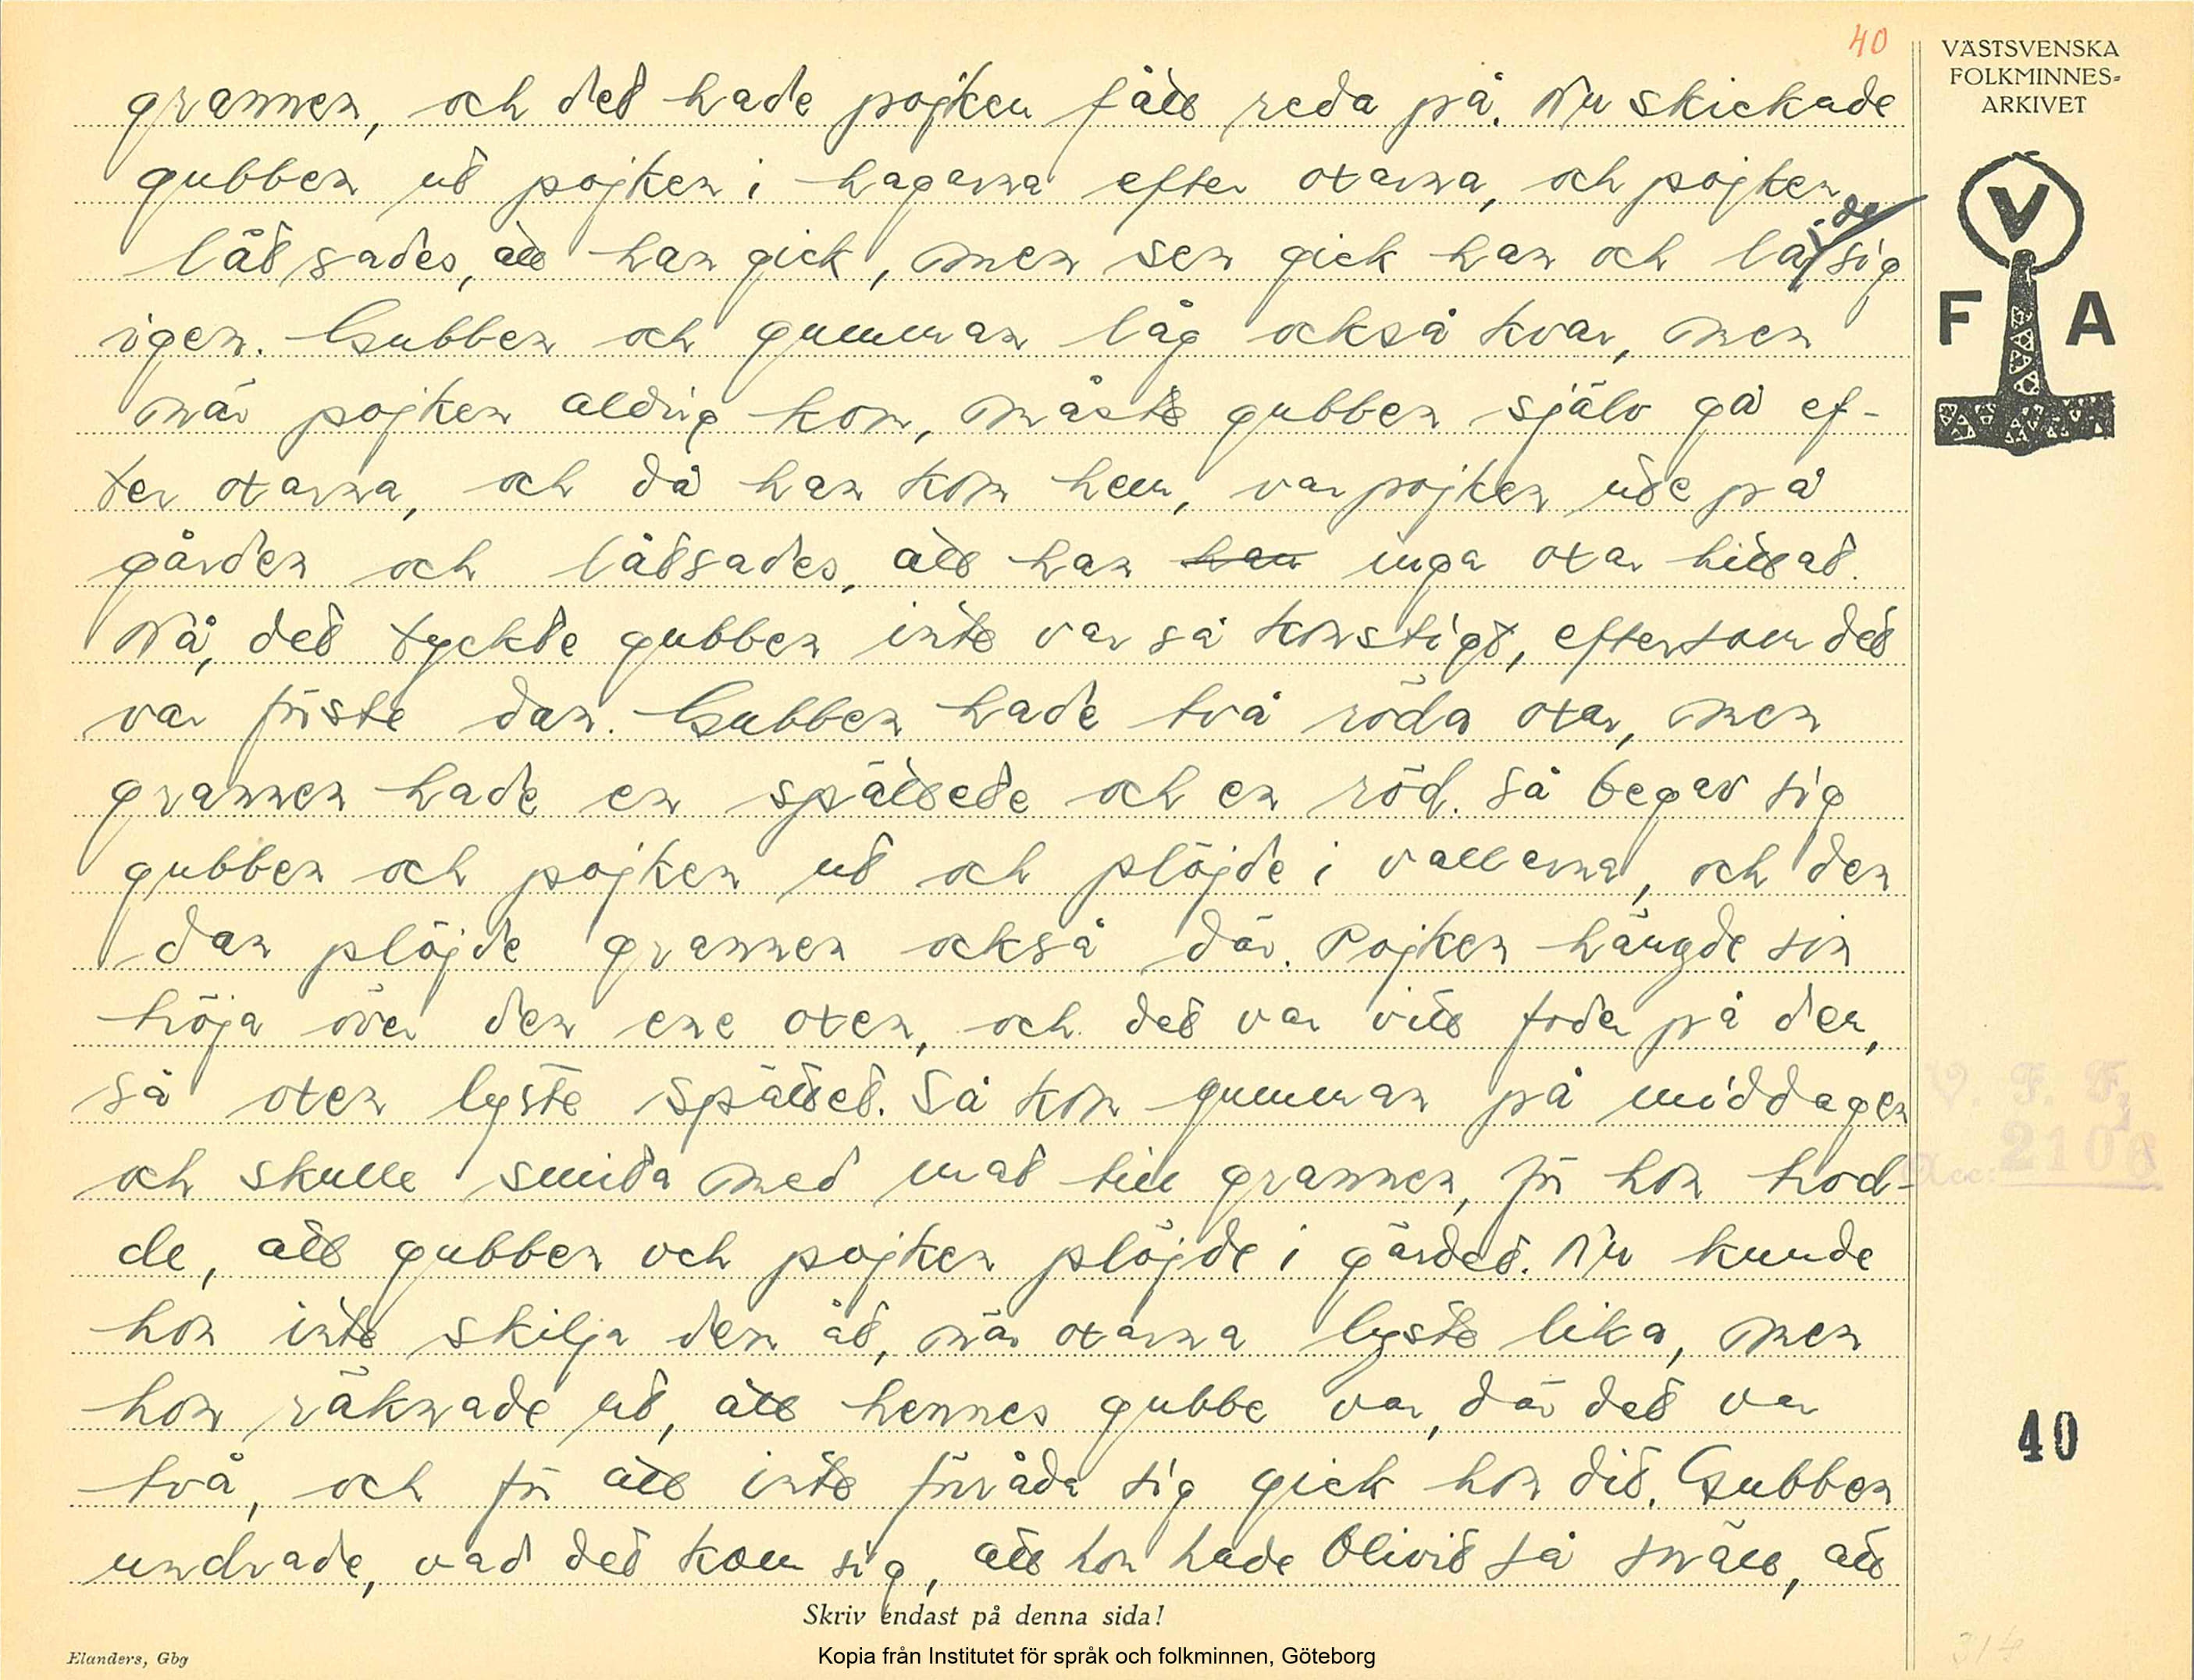 40
VÄSTSVENSKA
FOLKMINNES-
ARKIVET
V
F A
grannen, och det hade pojken fått reda på. Nu skickade
gubben ut pojken i hagarna efter oxarna, och pojken
låtsades, att han gick, men sen gick han och la de sig
igen. Gubben och gumman låg också kvar, men
när pojken aldrig kom, måste gubben själv gå ef-
ter oxarna, och då han kom hem, var pojken ute på
gården och låtsades, att han han inga oxar hittat.
Nå, det tyckte gubben inte var så konstigt, eftersom det
var förste dan. Gubben hade två röda oxar, men
grannen hade en spättete och en röd. Så begav sig
gubben och pojken ut och plöjde i vallarna, och den
dan plöjde grannen också där. Pojken hängde sin
tröja över den ene oxen, och det var vitt foder på den,
så oxen lyste spättet. Så kom gumman på middagen
och skulle smita med mat till grannen, för hon trod-
de, att gubben och pojken plöjde i gärdet. Nu kunde
hon inte skilja dem åt, när oxarna lyste lika, men
hon räknade ut, att hennes gubbe var, där det var
två, och för att inte förråda sig gick hon dit. Gubben
undrade, vad det kom sig, att hon hade blivit så snäll, att
V. F. F.
Acc: 2106
40
314
Skriv endast på denna sida!
Elanders, Gbg
Kopia från Institutet för språk och folkminnen, Göteborg